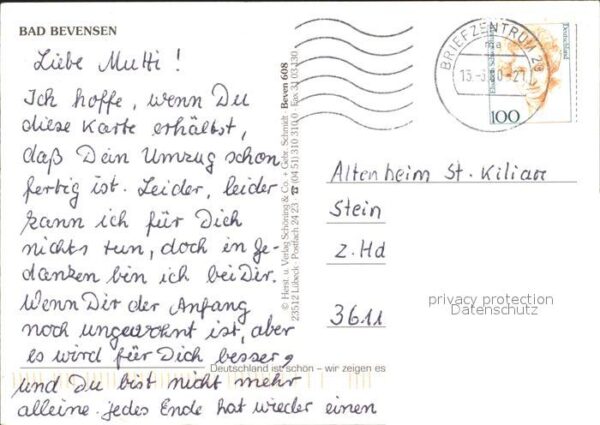 BAD BEVENSEN
Liebe Mutti!
Ich hoffe, wenn Du
diese Karte erhältst,
daß Dein Umzug schon
fertig ist. Leider, leider
kann ich für Dich
nichts tun, doch in Ge-
danken bin ich bei Dir.
Wenn Dir der Anfang
noch ungewohnt ist, aber
es wird für Dich besser,
und Du bist nicht mehr
alleine. jedes Ende hat wieder einen
Deutschland ist schön – wir zeigen es
© Herst. u. Verlag Schöning & Co. + Gebr. Schmidt · Beven 608
23512 Lübeck · Postfach 24 23 · ☎ (04 51) 310 310,0 · Fax 31 03 30
BRIEFZENTRUM 29
Deutschland
100
Altenheim St. Kilian
Stein
z. Hd
3611
privacy protection
Datenschutz